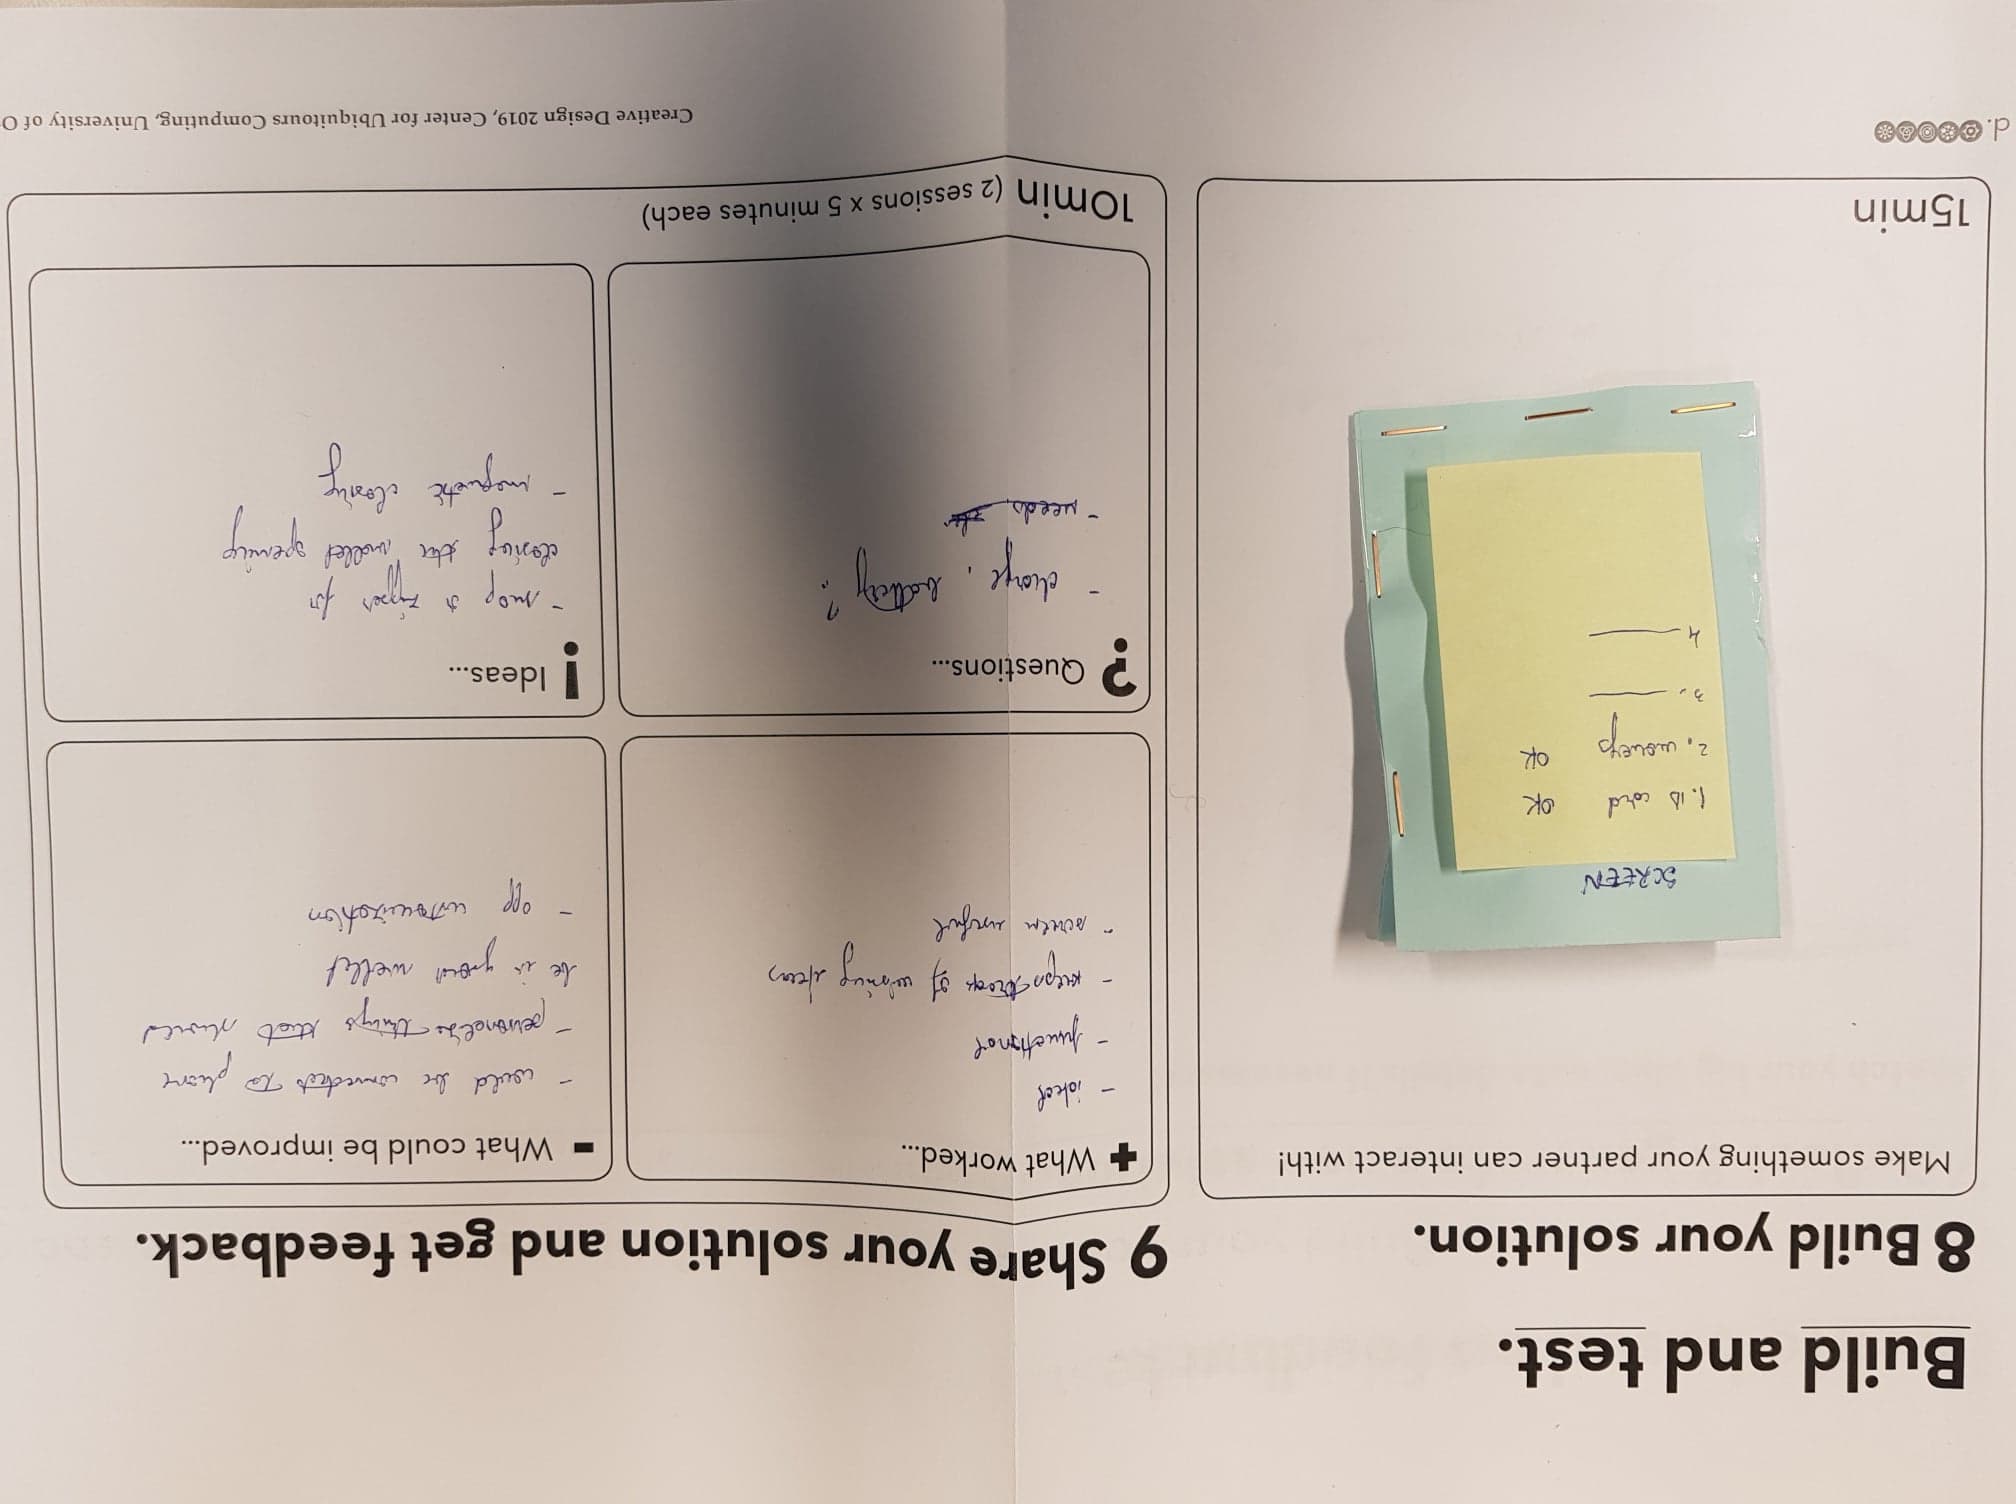 Build and test.
8 Build your solution.
Make something your partner can interact with!
SCREEN
1. ID card OK
2. moneys OK
3.
4
15min
9 Share your solution and get feedback.
+ What worked...
-
- functional
- keeps track of missing items
- screen useful
- What could be improved...
- could be connected to phone
- personalize things that should
be in your wallet
- app customization
? Questions...
- charge, battery?
- needs
! Ideas...
- snap or zipper for
closing the wallet opening
- magnetic closing
10min (2 sessions x 5 minutes each)
d.
Creative Design 2019, Center for Ubiquitours Computing, University of O